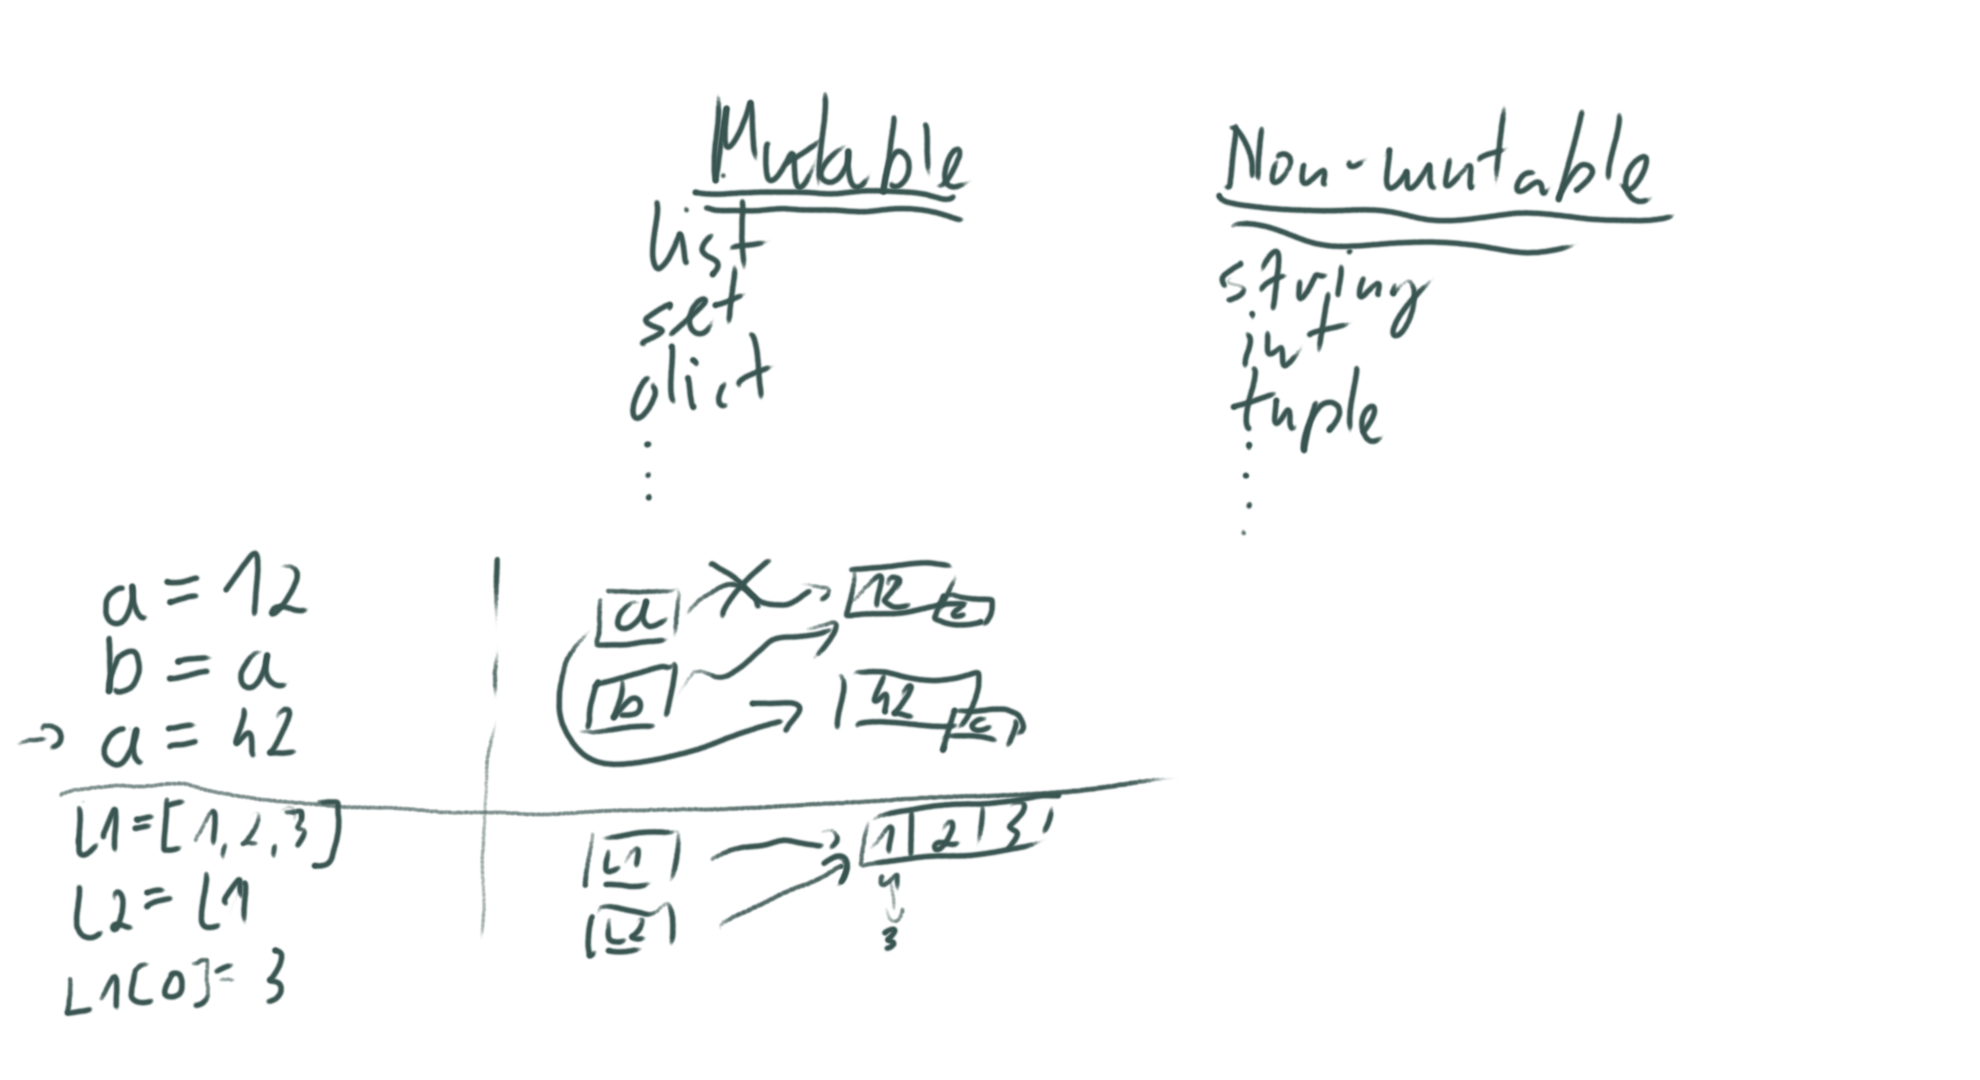 Mutable
list
set
dict
Non-mutable
string
int
tuple
a = 12
b = a
→ a = 42
a
b
12
42
L1 = [1, 2, 3]
L2 = L1
L1[0] = 3
L1
L2
1 | 2 | 3
3